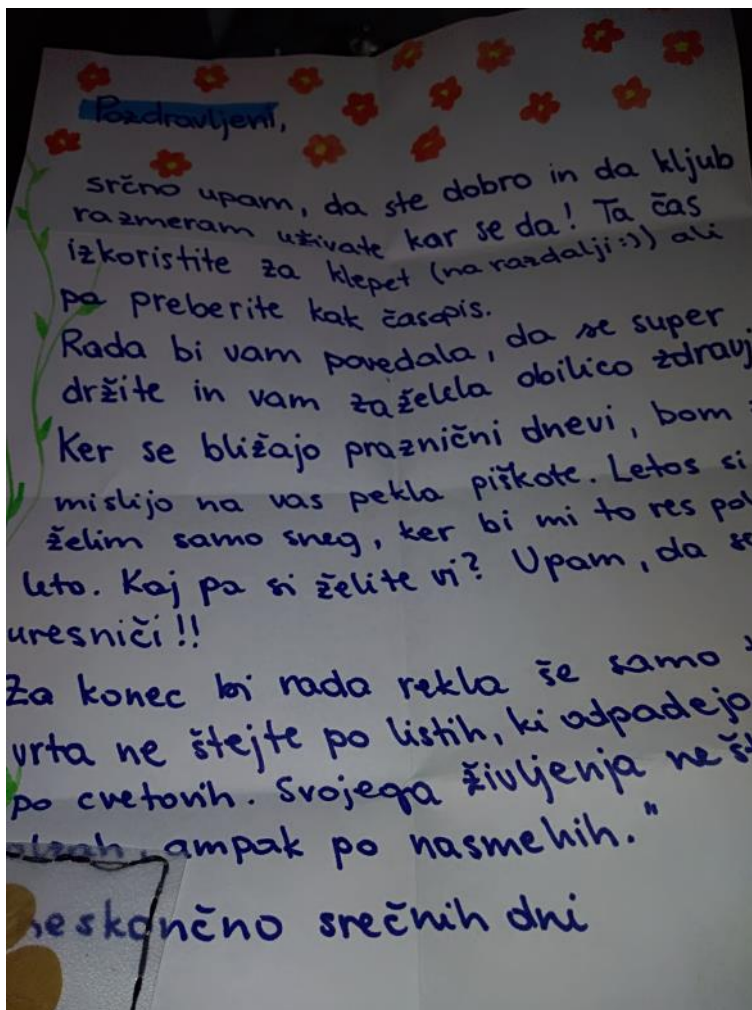 Pozdravljeni,
srčno upam, da ste dobro in da kljub
razmeram uživate kar se da! Ta čas
izkoristite za klepet (na razdalji :)) ali
pa preberite kak časopis.
Rada bi vam povedala, da se super
držite in vam zaželela obilico zdravj
Ker se bližajo praznični dnevi, bom
mislijo na vas pekla piškote. Letos si
želim samo sneg, ker bi mi to res
leto. Kaj pa si želite vi? Upam, da se
uresniči!!
Za konec bi rada rekla še samo
vrta ne štejte po listih, ki odpadejo
po cvetovih. Svojega življenja ne
ampak po nasmehih."
neskončno srečnih dni